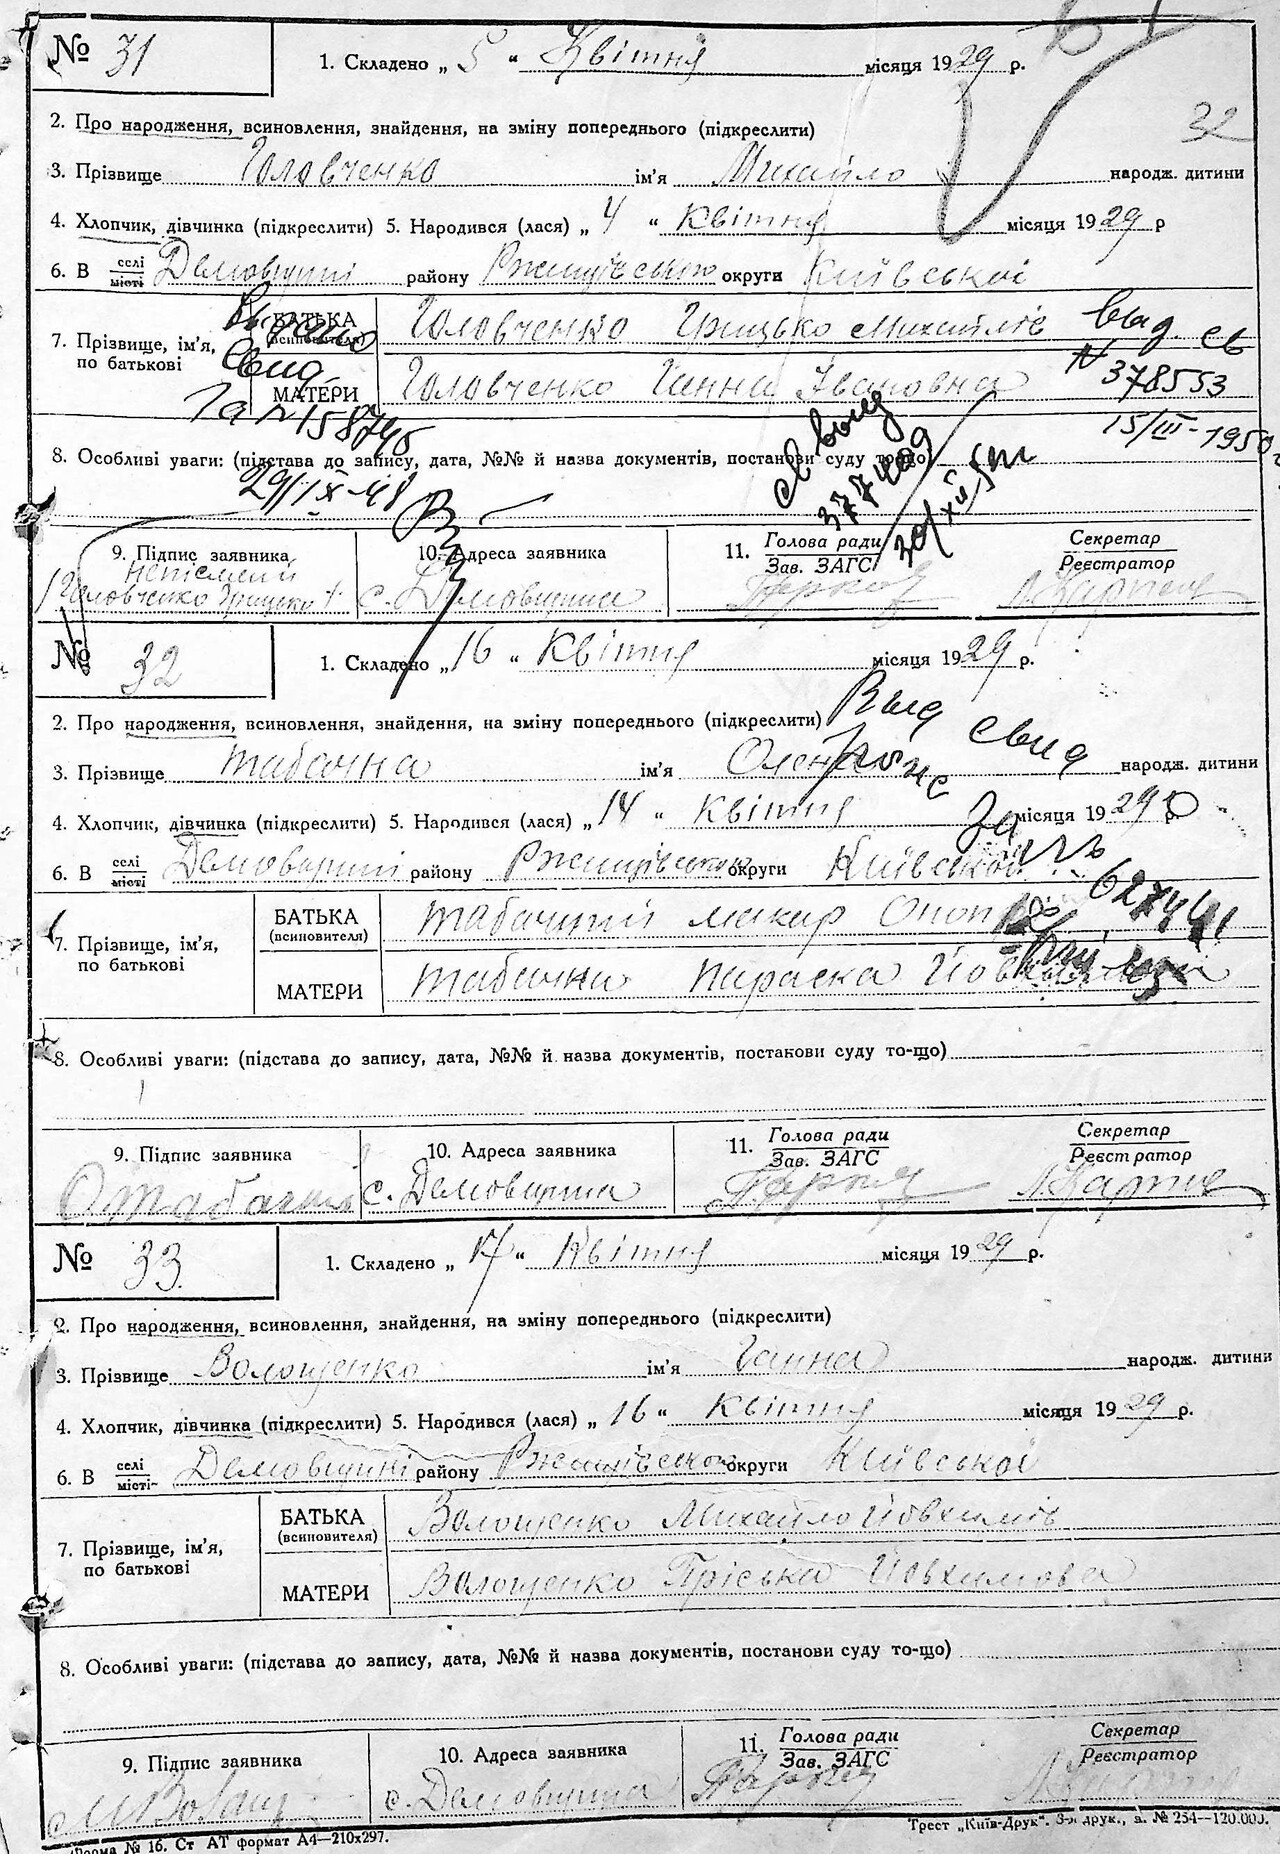 № 31
1. Складено „ 5 “ Квітня місяця 1929 р.
32
2. Про народження, всиновлення, знайдення, на зміну попереднього (підкреслити)
3. Прізвище Головченко ім'я Михайло народж. дитини
4. Хлопчик, дівчинка (підкреслити) 5. Народився (лася) „ 4 “ Квітня місяця 1929 р
6. В селі місті Демовщині району Ржищівського округи Київської
7. Прізвище, ім'я, по батькові
БАТЬКА (всиновителя) Головченко Грицько Михайлів
МАТЕРИ Головченко Ганна Івановна
выд св
N 378553
15/III-1950
Выдано
Свид
N 158745
29/IX-48
8. Особливі уваги: (підстава до запису, дата, №№ й назва документів, постанови суду то-що)
св выд
377409
30/XII
9. Підпис заявника
неписьмений
Головченко Грицько +
10. Адреса заявника
с. Демовщина
11. Голова ради
Зав. ЗАГС
Секретар
Реєстратор
№ 32
1. Складено „ 16 “ Квітня місяця 1929 р.
2. Про народження, всиновлення, знайдення, на зміну попереднього (підкреслити)
Выд свид
3. Прізвище Табачна ім'я Олена народж. дитини
4. Хлопчик, дівчинка (підкреслити) 5. Народився (лася) „ 14 “ Квітня місяця 1929 р.
За
6. В селі місті Демовщині району Ржищівського округи Київської
7. Прізвище, ім'я, по батькові
БАТЬКА (всиновителя) Табачний Макар
МАТЕРИ Табачна Параска
8. Особливі уваги: (підстава до запису, дата, №№ й назва документів, постанови суду то-що)
9. Підпис заявника
10. Адреса заявника
с. Демовщина
11. Голова ради
Зав. ЗАГС
Секретар
Реєстратор
№ 33
1. Складено „ 17 “ Квітня місяця 1929 р.
2. Про народження, всиновлення, знайдення, на зміну попереднього (підкреслити)
3. Прізвище Волощенко ім'я Ганна народж. дитини
4. Хлопчик, дівчинка (підкреслити) 5. Народився (лася) „ 16 “ Квітня місяця 1929 р.
6. В селі місті Демовщині району Ржищівського округи Київської
7. Прізвище, ім'я, по батькові
БАТЬКА (всиновителя) Волощенко Михайло Йовхимів
МАТЕРИ Волощенко Пріська Йовхимова
8. Особливі уваги: (підстава до запису, дата, №№ й назва документів, постанови суду то-що)
9. Підпис заявника
10. Адреса заявника
с. Демовщина
11. Голова ради
Зав. ЗАГС
Секретар
Реєстратор
Форма № 16. Ст АТ формат А4—210х297.
Трест „Київ-Друк“. 3-я друк., з. № 254—120.000.